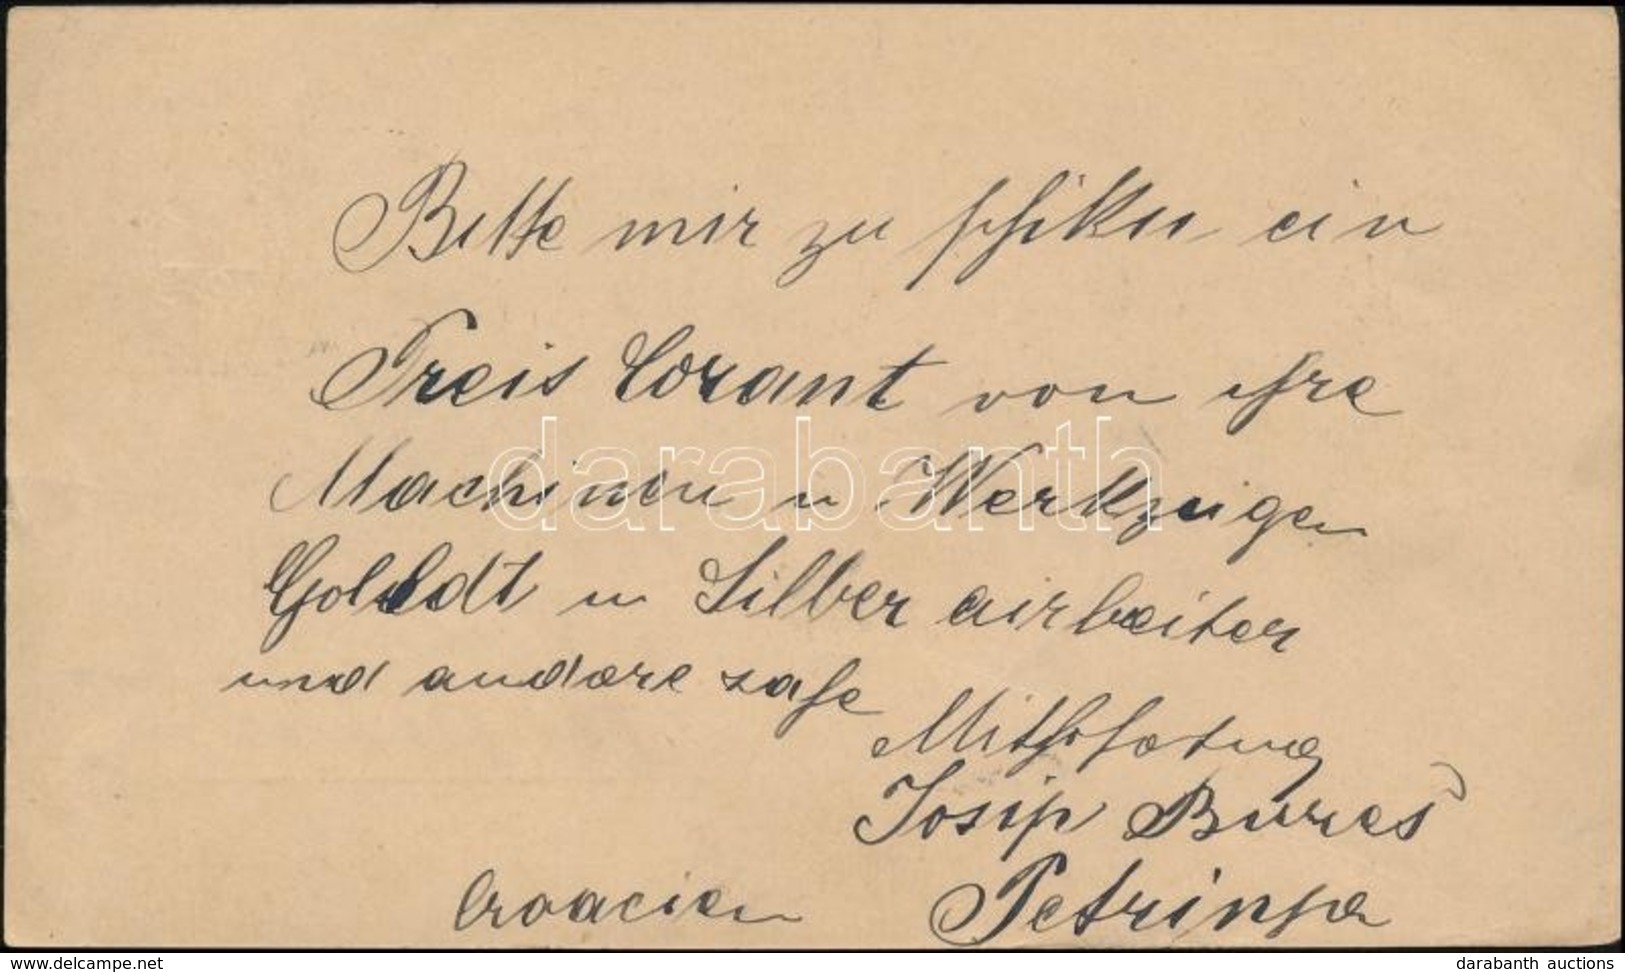 Bitte mir zu schiken ein
Preis Corant von ihre
Machinen u Werkzeigen
Goldt u Silber airbeiter
und andere sahe
Mithohatung
Josip Bureš
Croacien Petrinja
darabanth
delcampe.net
darabanth auctions